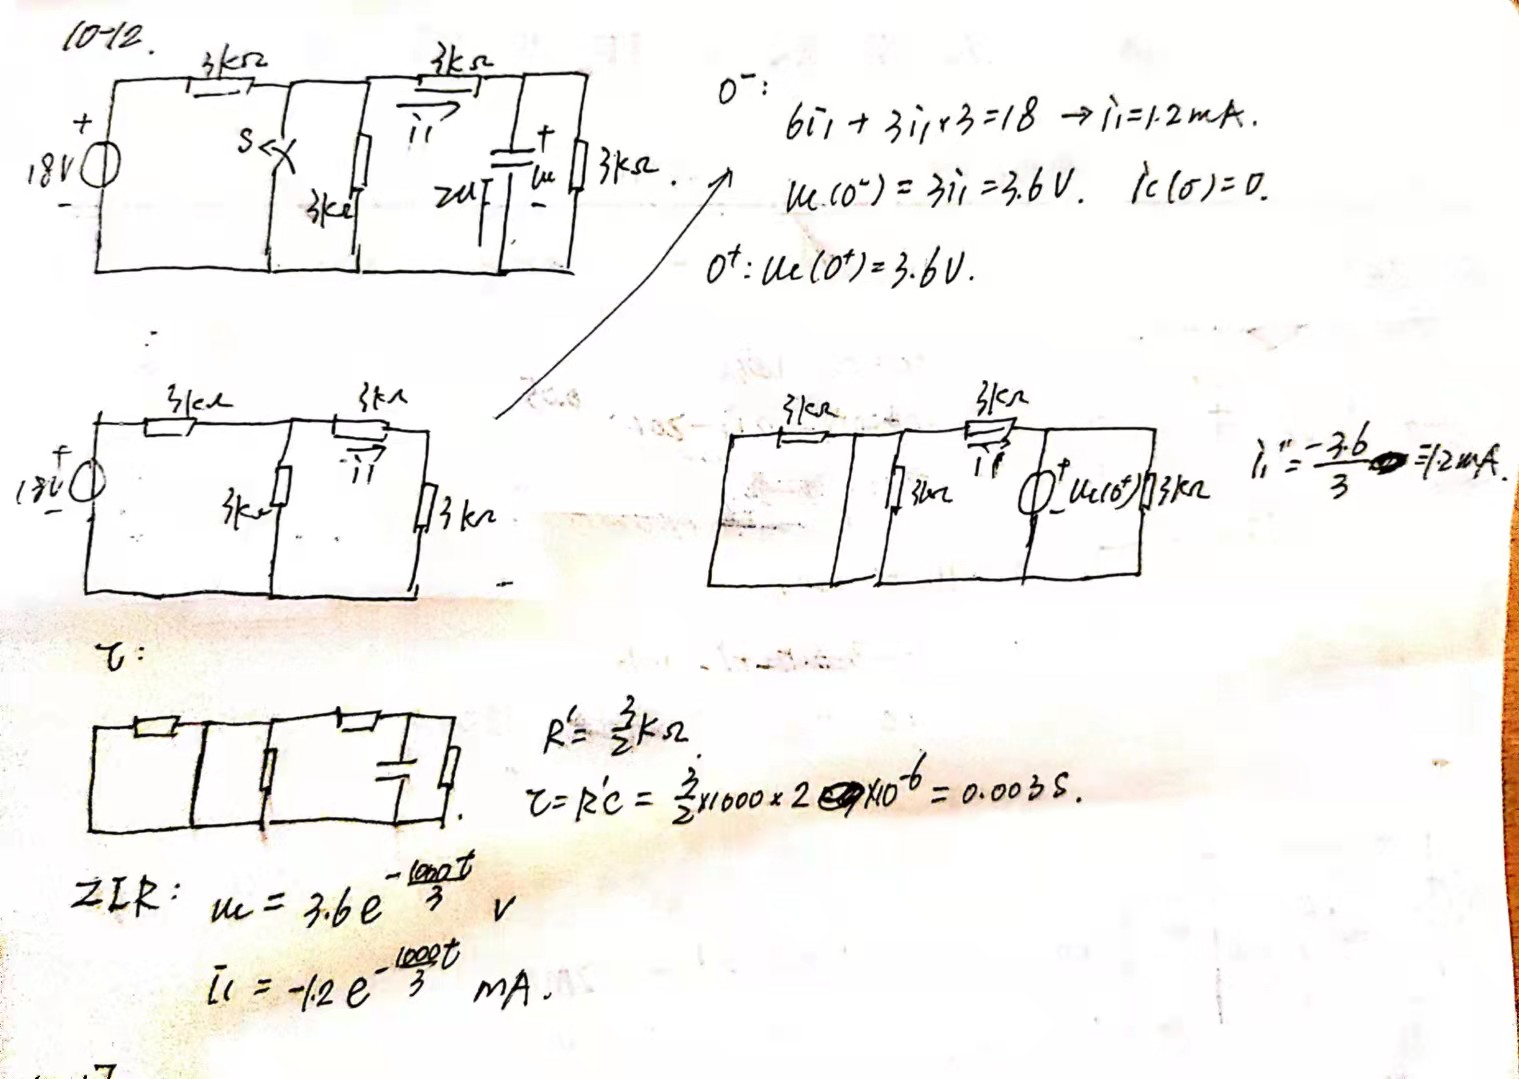 10-12.
3kΩ
3kΩ
+
18V
-
S
3kΩ
i₁
2μF
+
uc
-
3kΩ
0⁻:
6i₁ + 3i₁×3 = 18 → i₁=1.2mA.
uc(0⁻) = 3i₁ = 3.6V. ic(0⁻)=0.
0⁺: uc(0⁺) = 3.6V.
3kΩ
3kΩ
+
18V
-
3kΩ
i₁
3kΩ
3kΩ
3kΩ
i₁
3kΩ
+
uc(0⁺)
-
3kΩ
i₁" = -3.6/3 = 1.2mA.
τ:
R' = 3/2 kΩ.
τ = R'C = 3/2 ×1000 × 2 ×10⁻⁶ = 0.003 S.
ZIR: uc = 3.6 e^(-1000t/3) V
i₁ = -1.2 e^(-1000t/3) mA.